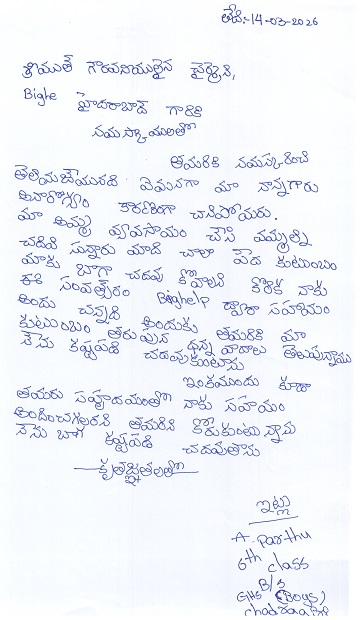 తేది:-14-03-2026
శ్రీయుత గౌరవనీయులైన చైర్మెన్,
Bighe హైదరాబాద్ గారికి
నమస్కాములతో
తమరికి నమస్కరించి
తెలియజేయునది ఏమనగా మా నాన్నగారు
అనారోగ్యం కారణంగా చనిపోయరు.
మా అమ్మ వ్యవసాయం చేసి మమ్మల్ని
చదివి స్తున్నారు మాది చాలా పేద కుటుంబం
మాకు బాగా చదవు కోవాలని కోరిక నాకు
ఈ సంవత్సరం Bighelp ద్వారా సహాయం
అందు చున్నది అందుకు తమరికి మా
కుటుంబం తరుపున ధన్న వాదాలు తెలుపున్నాను
నేను కష్టపడి చదువుకుంటాను
ఇంకముందు కూడా
తమరు సహృదయంతో నాకు సహాయం
అందించగలరని తమరిని కోరుకుంటున్నాను
నేను బాగ కష్టపడి చదువుతాను
కృతజ్ఞతలతో
ఇట్లు
A. Parthu
6th class
B/S
GHS (Boys)